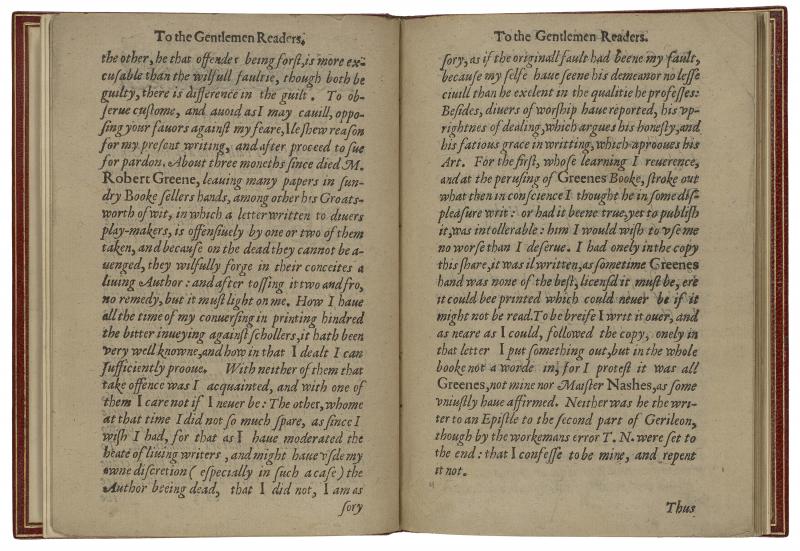 To the Gentlemen Readers.
the other, he that offendes being forst, is more ex-
cusable than the wilfull faultie, though both be
guilty, there is difference in the guilt. To ob-
serue custome, and auoid as I may cauill, oppo-
sing your fauors against my feare, Ile shew reason
for my present writing, and after proceed to sue
for pardon. About three moneths since died M.
Robert Greene, leauing many papers in sun-
dry Booke sellers hands, among other his Groats-
worth of wit, in which a letter written to diuers
play-makers, is offensiuely by one or two of them
taken, and because on the dead they cannot be a-
uenged, they wilfully forge in their conceites a
liuing Author: and after tossing it two and fro,
no remedy, but it must light on me. How I haue
all the time of my conuersing in printing hindred
the bitter inueying against schollers, it hath been
very well knowne, and how in that I dealt I can
sufficiently prooue. With neither of them that
take offence was I acquainted, and with one of
them I care not if I neuer be: The other, whome
at that time I did not so much spare, as since I
wish I had, for that as I haue moderated the
heate of liuing writers, and might haue vsde my
owne discretion (especially in such a case) the
Author beeing dead, that I did not, I am as
sory
To the Gentlemen Readers.
sory, as if the originall fault had beene my fault,
because my selfe haue seene his demeanor no lesse
ciuill than he exelent in the qualitie he professes:
Besides, diuers of worship haue reported, his vp-
rightnes of dealing, which argues his honesty, and
his fatious grace in writting, which aprooues his
Art. For the first, whose learning I reuerence,
and at the perusing of Greenes Booke, stroke out
what then in conscience I thought he in some dis-
pleasure writ: or had it beene true, yet to publish
it, was intollerable: him I would wish to vse me
no worse than I deserue. I had onely in the copy
this share, it was il written, as sometime Greenes
hand was none of the best, licensd it must be, ere
it could bee printed which could neuer be if it
might not be read. To be breife I writ it ouer, and
as neare as I could, followed the copy, onely in
that letter I put something out, but in the whole
booke not a worde in, for I protest it was all
Greenes, not mine nor Maister Nashes, as some
vniustly haue affirmed. Neither was he the wri-
ter to an Epistle to the second part of Gerileon,
though by the workemans error T. N. were set to
the end: that I confesse to be mine, and repent
it not.
Thus